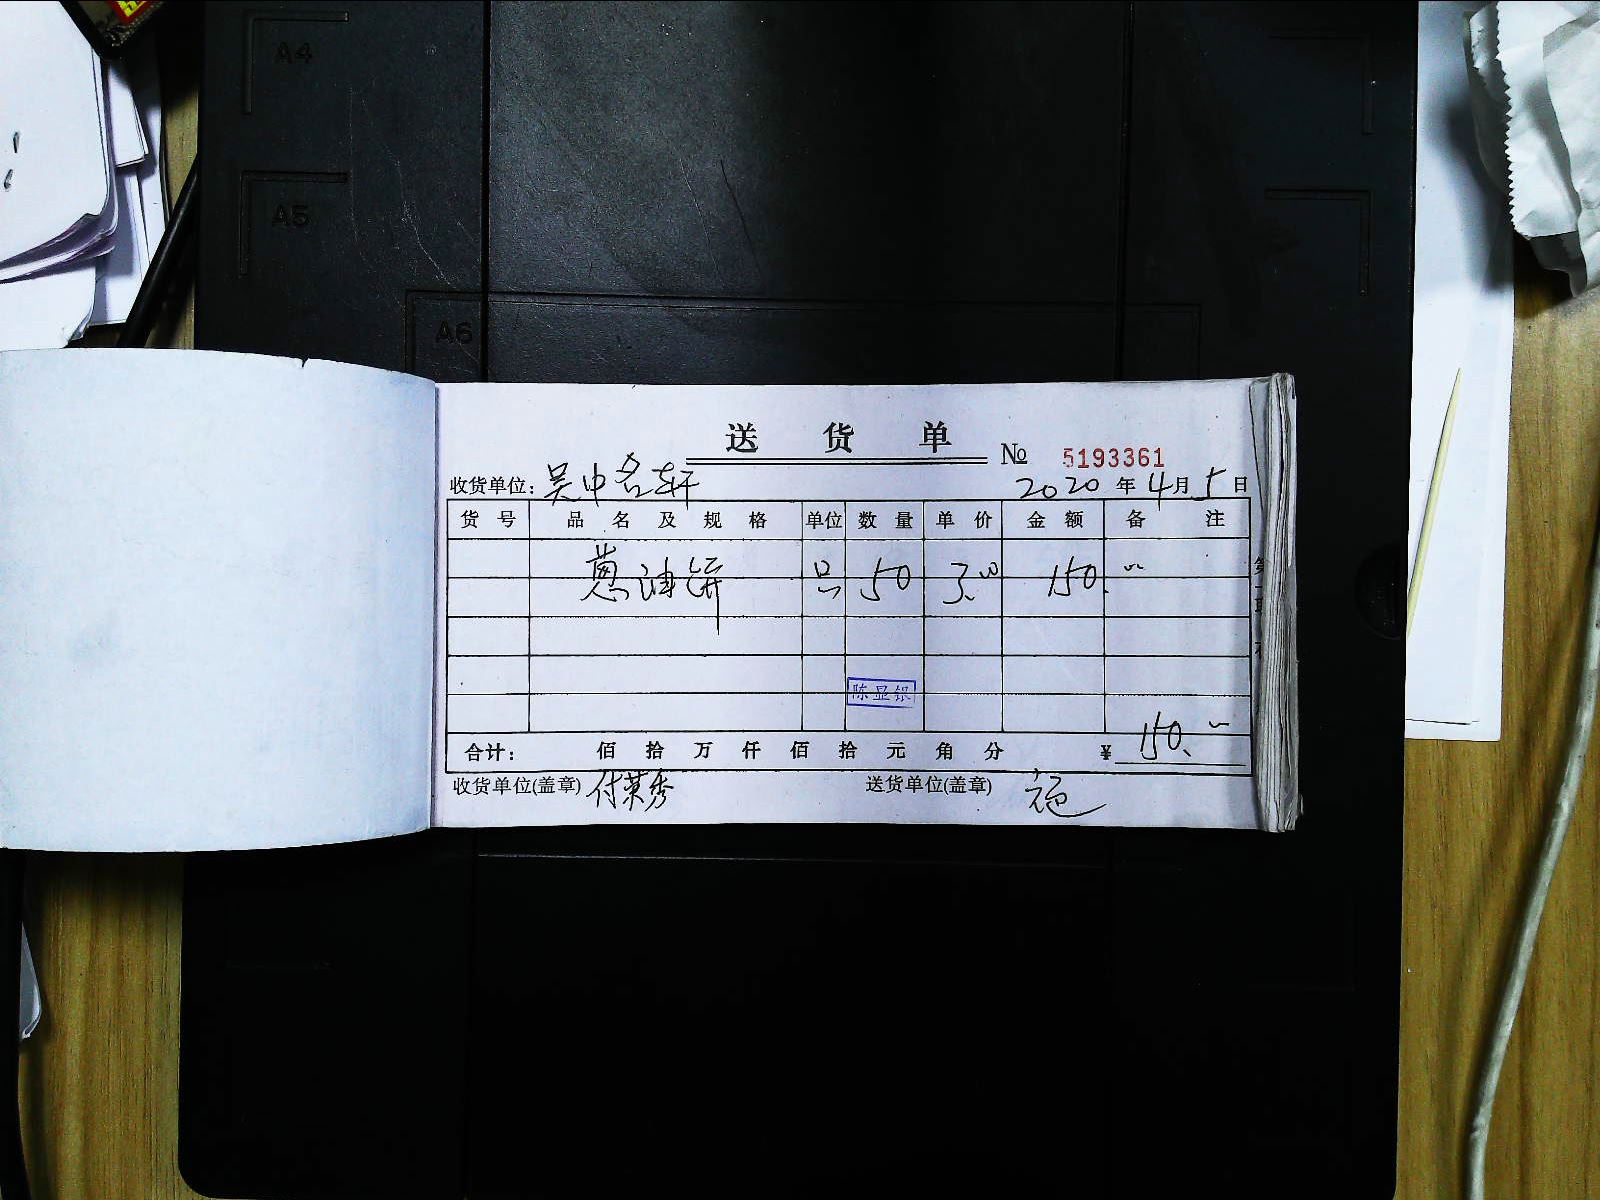 A4
A5
A6
送货单
№ 5193361
收货单位: 吴中名轩 2020年4月5日
货号 品名及规格 单位 数量 单价 金额 备注
蔥油饼 只 50 3.00 150.
陈显银
合计: 佰拾万仟佰拾元角分 ¥ 150.
收货单位(盖章) 付菜秀 送货单位(盖章)